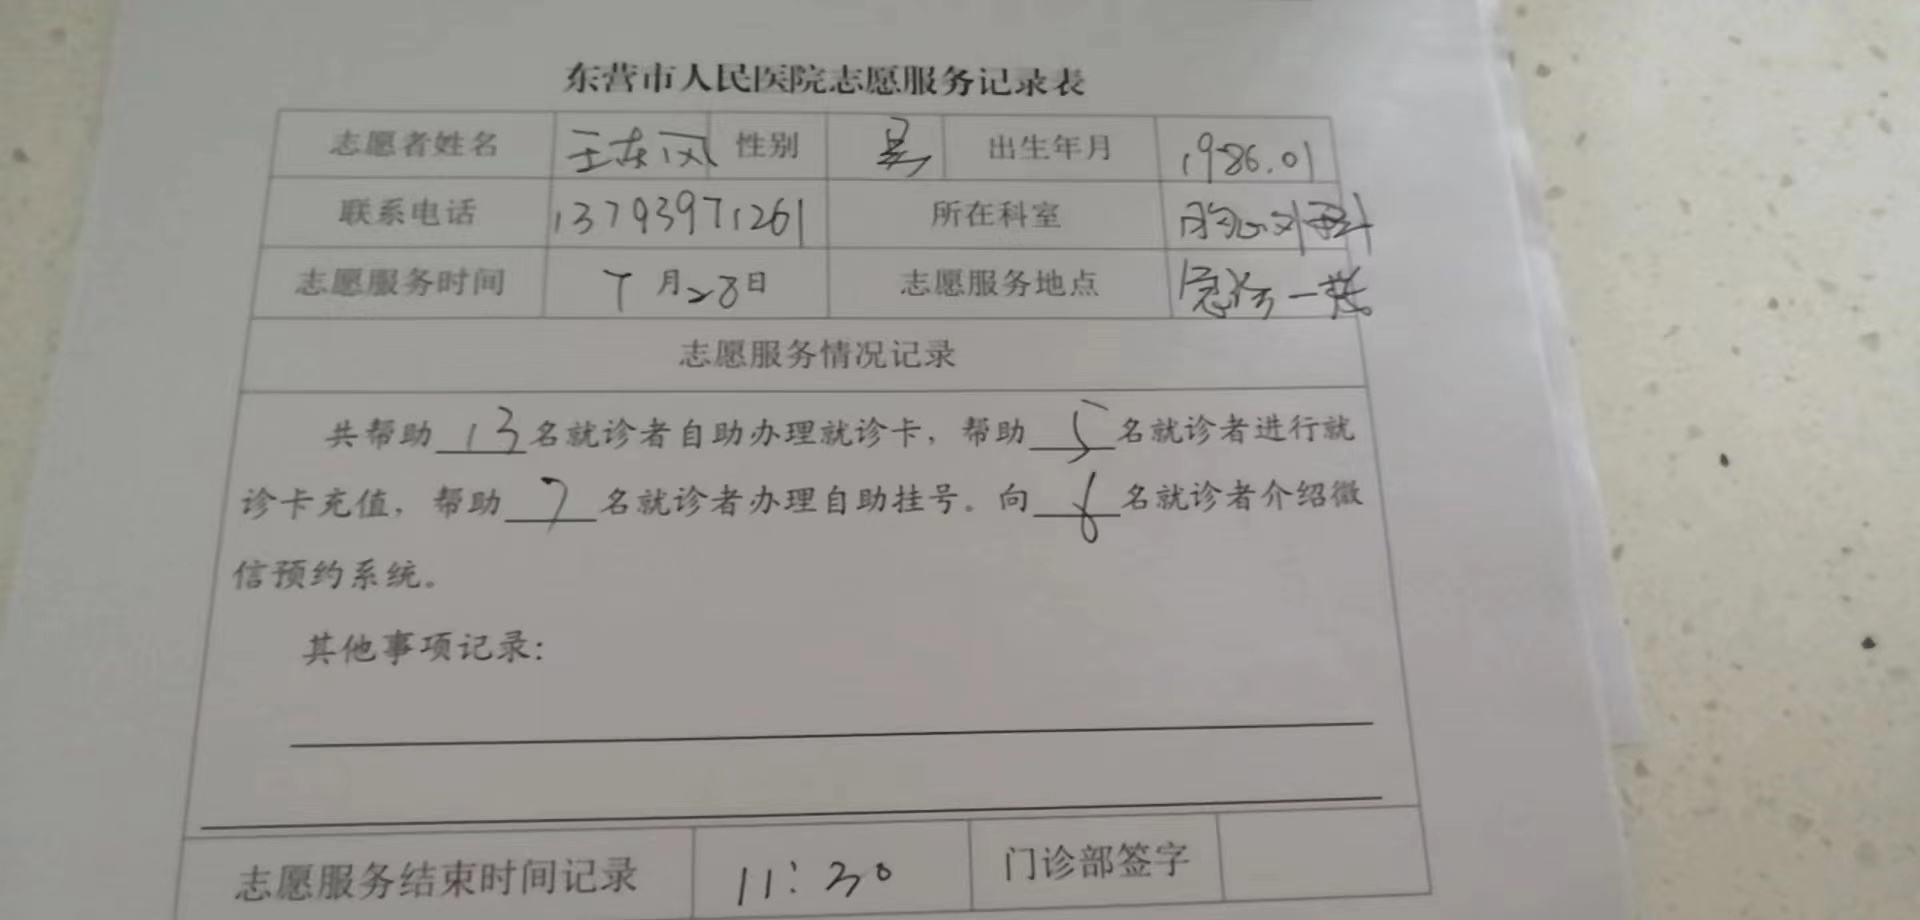 东营市人民医院志愿服务记录表
志愿者姓名 王东风 性别 男 出生年月 1986.01
联系电话 13793971261 所在科室 胸心外科
志愿服务时间 7月28日 志愿服务地点 急诊一楼
志愿服务情况记录
共帮助 13 名就诊者自助办理就诊卡，帮助 5 名就诊者进行就
诊卡充值，帮助 7 名就诊者办理自助挂号。向 6 名就诊者介绍微
信预约系统。
其他事项记录：
志愿服务结束时间记录 11:30 门诊部签字